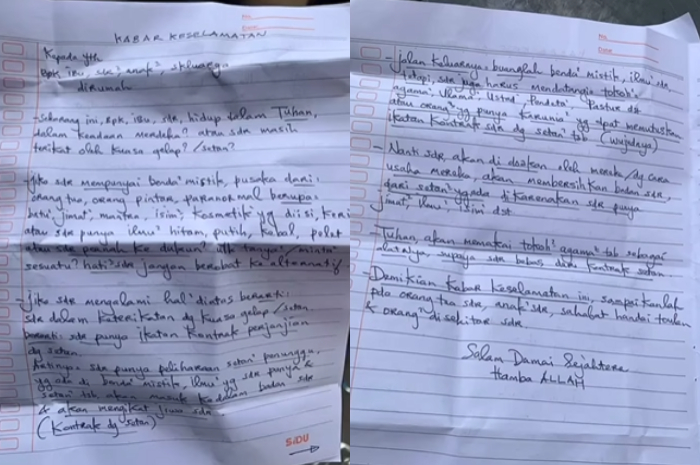 KABAR KESELAMATAN
Kepada yth
Bpk, ibu, sdr², anak², skluarga
dirumah
- Sekarang ini, Bpk, ibu, sdr, hidup dalam Tuhan,
dalam keadaan merdeka? atau sdr masih
terikat oleh kuasa gelap? / setan?
- Jika sdr mempunyai benda² mistik, pusaka dari:
orang tua, orang pintar, paranormal berupa:
batu, jimat, mantra, isim, kosmetik yg di isi, keris
atau sdr punya ilmu² hitam, putih, kabal, pelet
atau sdr pernah ke dukun? utk tanya², minta²
sesuatu? hati² sdr jangan berobat ke alternatif
- jika sdr mengalami hal² diatas berarti:
sdr dalam keterikatan dg kuasa gelap / setan.
berarti: sdr punya ikatan kontrak perjanjian
dg setan.
Artinya: sdr punya peliharaan setan² penunggu,
yg ada di benda² mistik, ilmu² yg sdr punya &
setan² tsb akan masuk kedalam badan sdr
& akan mengikat jiwa sdr
(kontrak dg setan)
SiDU
No.
Date.
- jalan keluarnya: buanglah benda² mistik, ilmu² sdr,
tetapi, sdr juga harus mendatangi tokoh²
agama, Ulama, Ustad, Pendeta, Pastur dst
atau orang² yg punya karunia² yg dpat memutuskan
ikatan kontrak sdr dg setan² tsb (wujudnya)
- Nanti sdr akan di doakan oleh mereka / dg cara
usaha mereka, akan membersihkan badan sdr,
dari setan² yg ada dikarenakan sdr punya
jimat, ilmu², isim dst
- Tuhan, akan memakai tokoh² agama² tsb sebagai
alatnya, supaya sdr bebas dari kontrak setan
- Demikian Kabar Keselamatan ini, sampaikanlah
pda orang tua sdr, anak² sdr, sahabat handai taulan
& orang² disekitar sdr.
Salam Damai Sejahtera
Hamba ALLAH